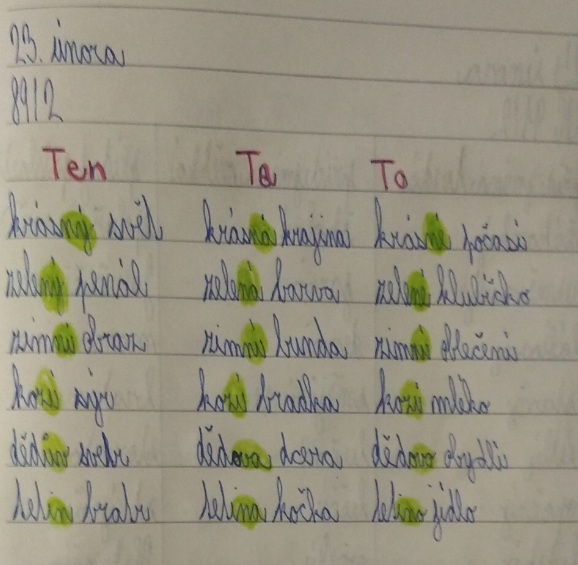 23. února
89/2
Ten Ta To
krásný svět krásná krajina krásné počasí
zelený penál zelená barva zelené klubíčko
zimní obraz zimní bunda zimní oblečení
kozí sýr kozí bradka kozí mléko
dědův svetr dědova dcera dědovo obydlí
tetin bratr tetina kočka tetino jídlo